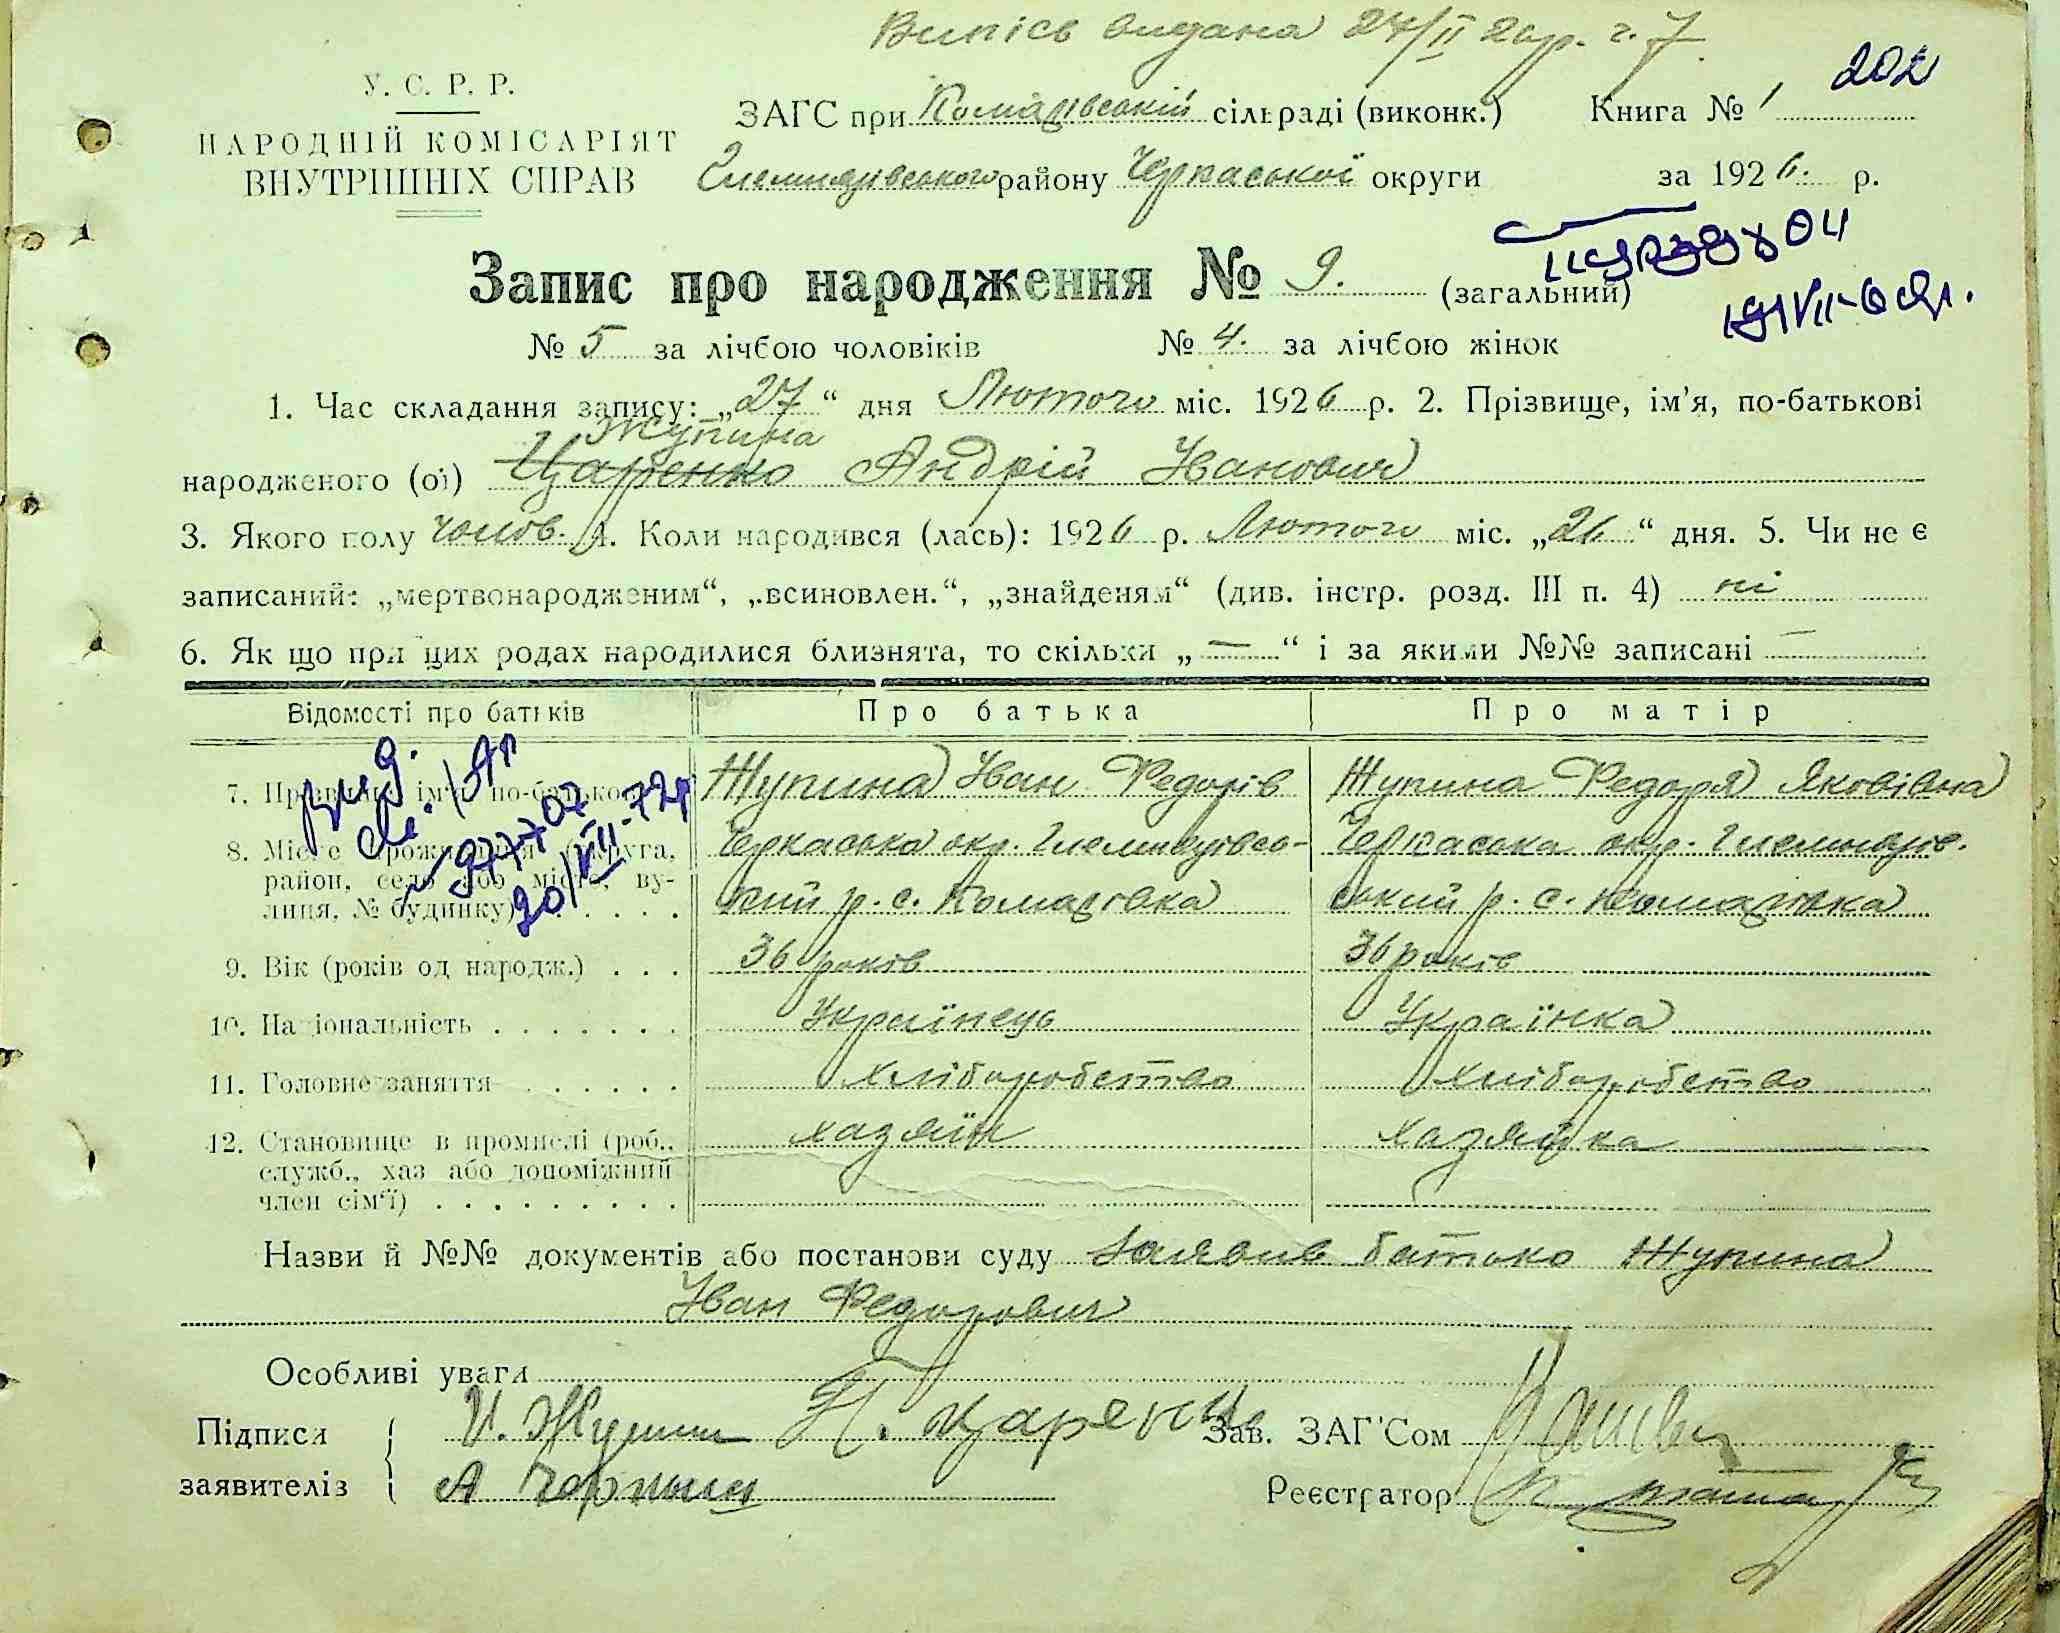 Випісь видана 27/II 26 р. ч. 7
202
У. С. Р. Р.
НАРОДНІЙ КОМІСАРІЯТ
ВНУТРІШНІХ СПРАВ
ЗАГС при Комарівській сільраді (виконк.) Книга № 1
Гельмязівського району Черкаської округи за 1926. р.
Запис про народження № 9. (загальний)
№ 5 за лічбою чоловіків № 4. за лічбою жінок
1. Час складання запису: „27“ дня Лютого міс. 1926 р. 2. Прізвище, ім'я, по-батькові
Жупина
народженого (ої) Царенко Андрій Іванович
3. Якого полу чолов. 4. Коли народився (лась): 1926 р. Лютого міс. „26“ дня. 5. Чи не є
записаний: „мертвонародженим“, „всиновлен.“, „знайденям“ (див. інстр. розд. III п. 4) ні
6. Як що при цих родах народилися близнята, то скільки „—“ і за якими №№ записані —
Відомості про батьків Про батька Про матір
7. Прізвище, ім'я, по-батькові Жупина Іван Федорів Жупина Федоря Яковівна
8. Місце прожи­вання (округа, Черкаська окр. Гельмязівсь- Черкаська окр. Гельмязів.
район, село або місто, ву- кий р. с. Комарівка ський р. с. Комарівка
лиця, № будинку) . . . . .
20/VII-72р
9. Вік (років од народж.) . . . 36 років 36 років
10. Національність . . . . . . . Українець Українка
11. Головне заняття . . . . . . хліборобство хліборобство
12. Становище в промислі (роб., хазяїн хазяйка
служб., хаз або допоміжний
член сім'ї) . . . . . . . . .
Назви й №№ документів або постанови суду Заявив батько Жупина
Іван Федорович
Особливі уваги
Підписи И. Жупин Н. Царенко Зав. ЗАГ'Сом
заявителів А Черныш Реєстратор